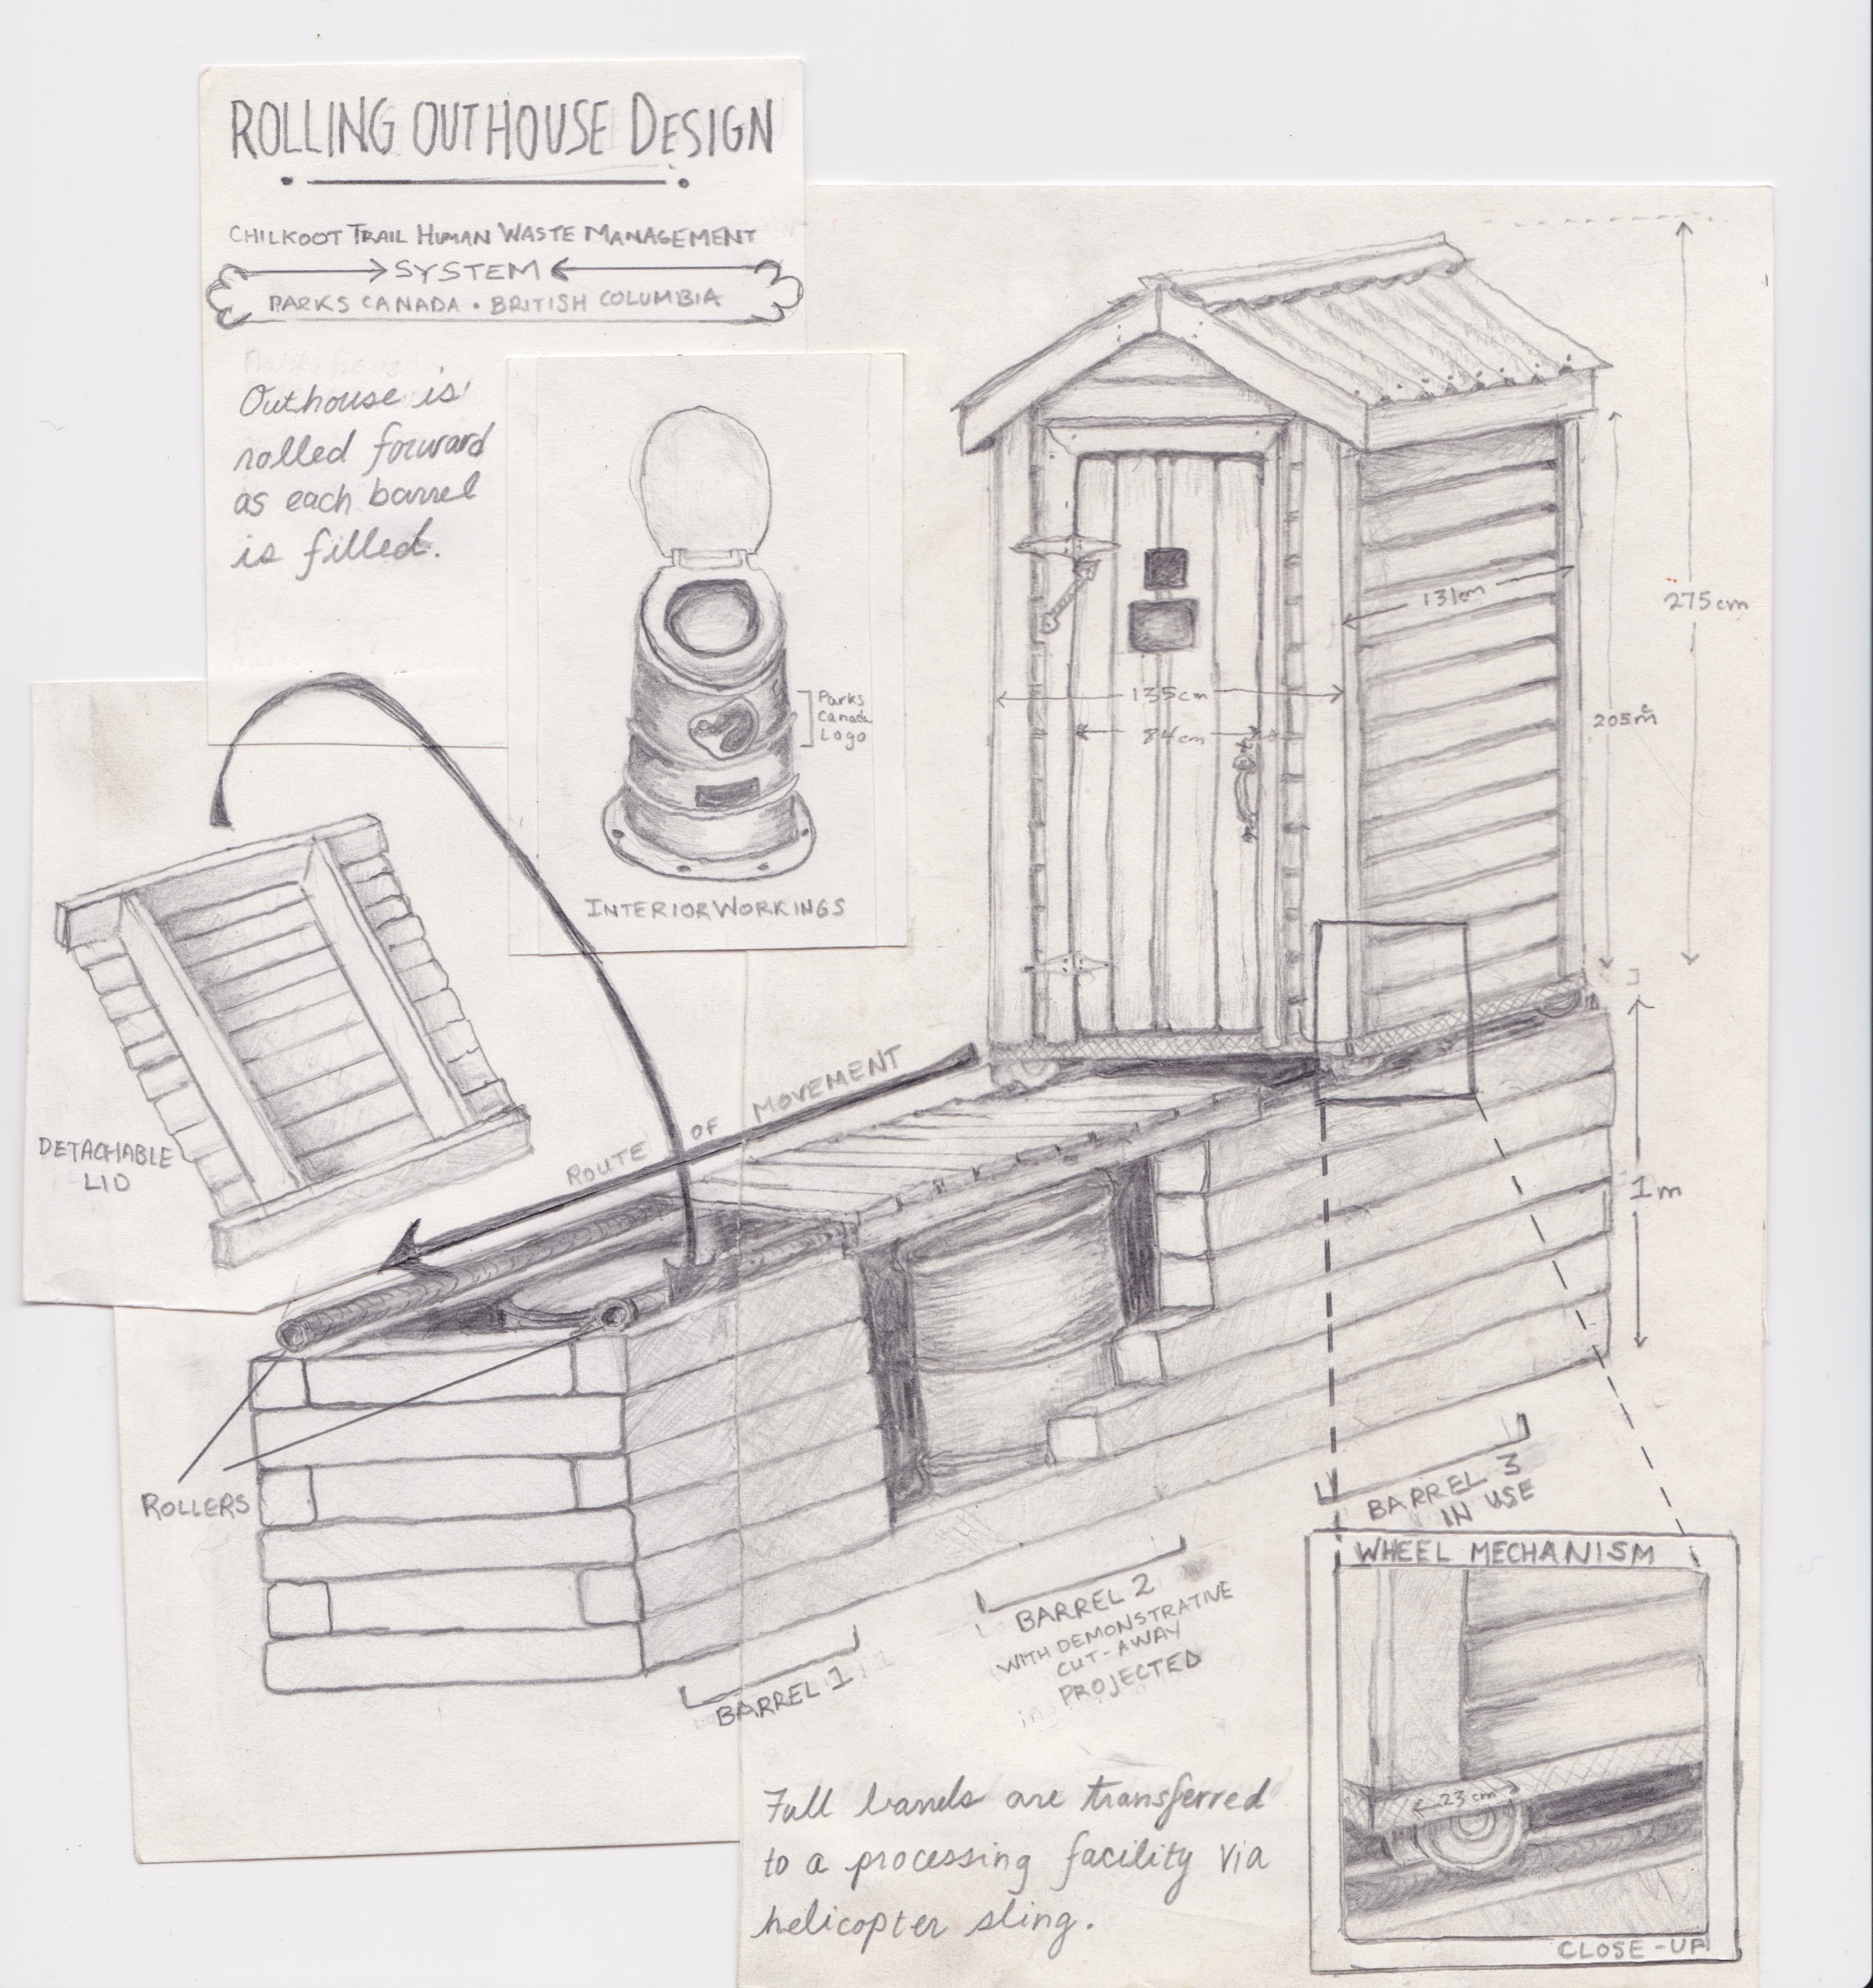 ROLLING OUTHOUSE DESIGN
CHILKOOT TRAIL HUMAN WASTE MANAGEMENT
SYSTEM
PARKS CANADA • BRITISH COLUMBIA
Outhouse is
rolled forward
as each barrel
is filled.
Parks
Canada
Logo
INTERIOR WORKINGS
275cm
131cm
135cm
84cm
205cm
1m
DETACHABLE
LID
ROUTE OF MOVEMENT
ROLLERS
BARREL 1
BARREL 2
WITH DEMONSTRATIVE
CUT-AWAY
PROJECTED
BARREL 3
IN USE
WHEEL MECHANISM
23 cm
CLOSE-UP
Full barrels are transferred
to a processing facility via
helicopter sling.